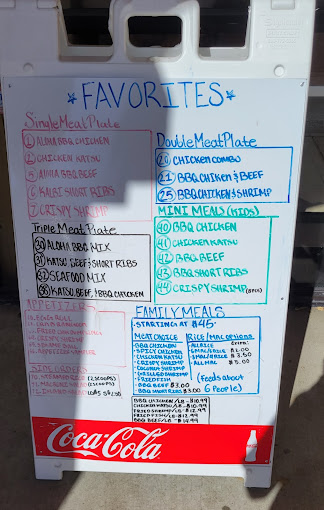 FAVORITES
Single Meat Plate
1 ALOHA BBQ CHICKEN
2 CHICKEN KATSU
5 ALOHA BBQ BEEF
6 KALBI SHORT RIBS
7 CRISPY SHRIMP
Double Meat Plate
20 CHICKEN COMBO
21 BBQ CHICKEN & BEEF
25 BBQ CHICKEN & SHRIMP
Triple Meat Plate
30 ALOHA BBQ MIX
31 KATSU, BEEF & SHORT RIBS
32 SEAFOOD MIX
KATSU, BEEF, BBQ CHICKEN
MINI MEALS (KIDS)
40 BBQ CHICKEN
41 CHICKEN KATSU
42 BBQ BEEF
43 BBQ SHORT RIBS
44 CRISPY SHRIMP
APPETIZERS
CRISPY SHRIMP
SIDE ORDERS
(2 SCOOPS)
FAMILY MEALS
- STARTING AT $45 -
MEAT CHOICE
- BBQ CHICKEN
- SPICY CHICKEN
- CHICKEN KATSU
- CRISPY SHRIMP
- COCONUT SHRIMP
- GRILLED SHRIMP
- FRIED FISH
- BBQ BEEF $2.00
- BBQ SHORT RIBS $3.00
Rice/Mac options
- ALL RICE
- ALL MAC $5.00
(Feeds about
6 People)
BBQ CHICKEN/LB - $10.99
CHICKEN KATSU/LB - $10.99
FRIED SHRIMP/LB - $12.99
FRIED FISH/LB - $12.99
BBQ BEEF/LB - $14.99
Coca-Cola